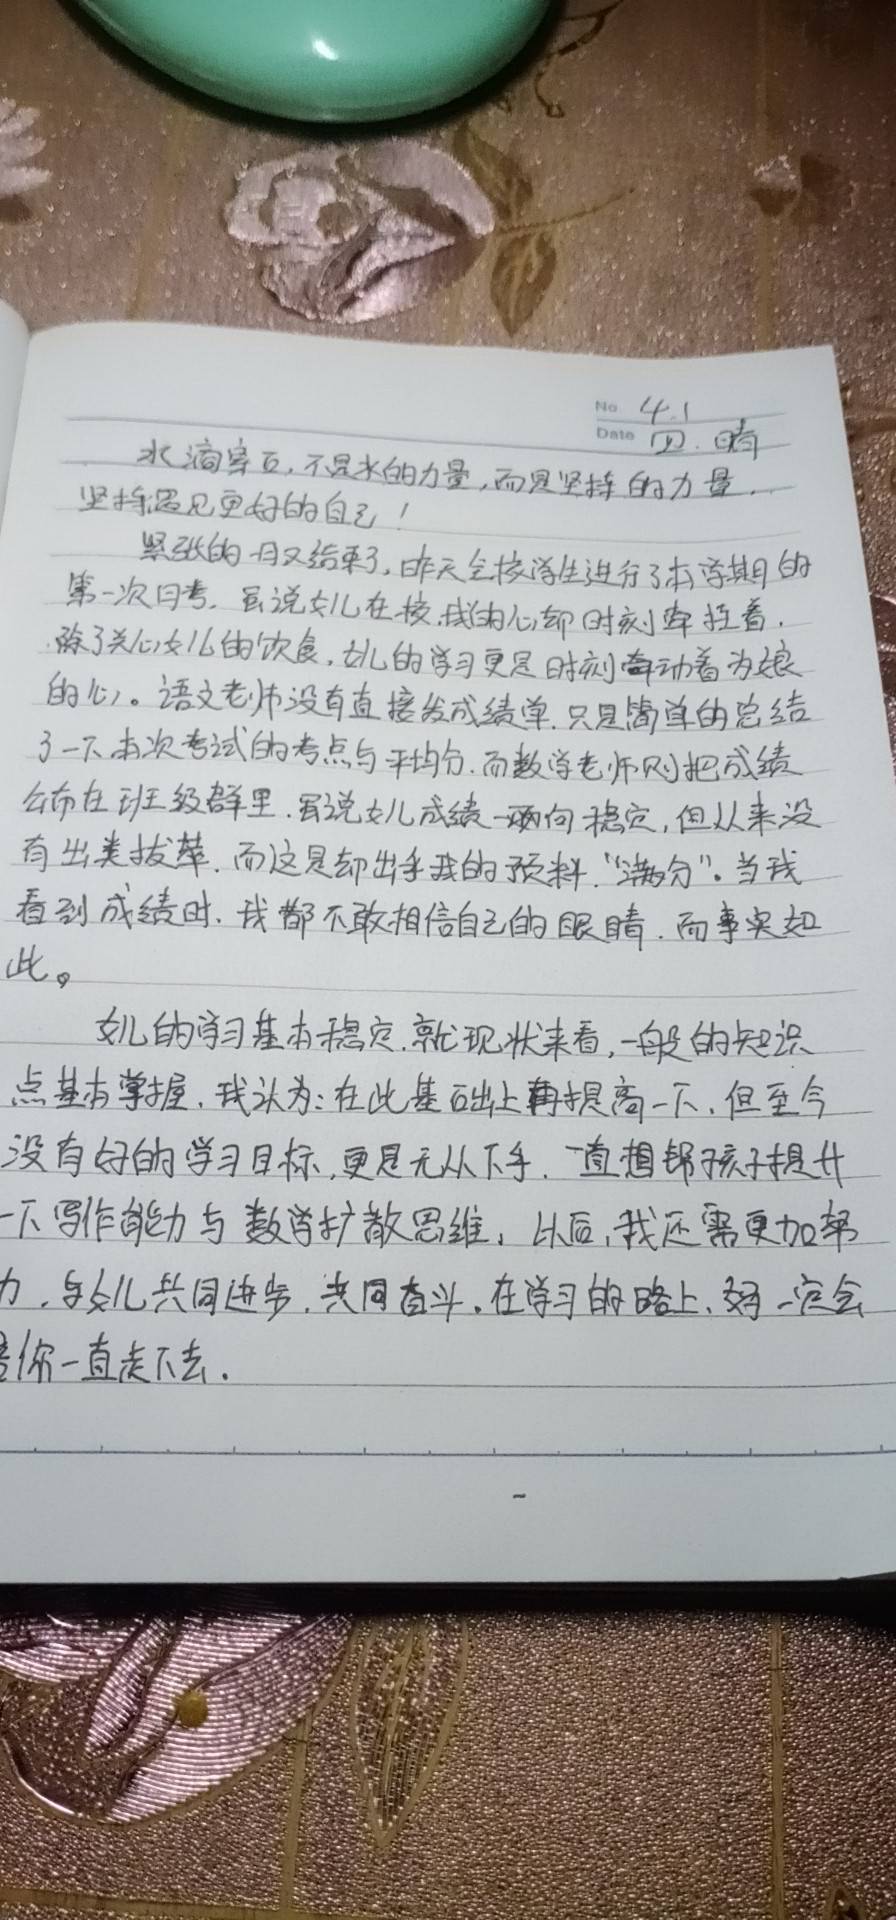 No 4.1
Date 四.晴
水滴穿石,不是水的力量,而是坚持的力量.
坚持遇见更好的自己!
紧张的一月又结束了,昨天全校学生进行了本学期的
第一次月考.虽说女儿在校,我的心却时刻牵挂着.
除了关心女儿的饮食,女儿的学习更是时刻牵动着为娘
的心。语文老师没有直接发成绩单.只是简单的总结
了一下本次考试的考点与平均分.而数学老师则把成绩
公布在班级群里.虽说女儿成绩一向稳定,但从来没
有出类拔萃.而这是却出乎我的预料."满分"。当我
看到成绩时.我都不敢相信自己的眼睛.而事实如
此。
女儿的学习基本稳定.就现状来看,一般的知识
点基本掌握.我认为:在此基础上再提高一下.但至今
没有好的学习目标,更是无从下手.一直想帮孩子提升
一下写作能力与数学扩散思维.以后,我还需更加努
力.与女儿共同进步.共同奋斗.在学习的路上.妈一定会
陪你一直走下去.